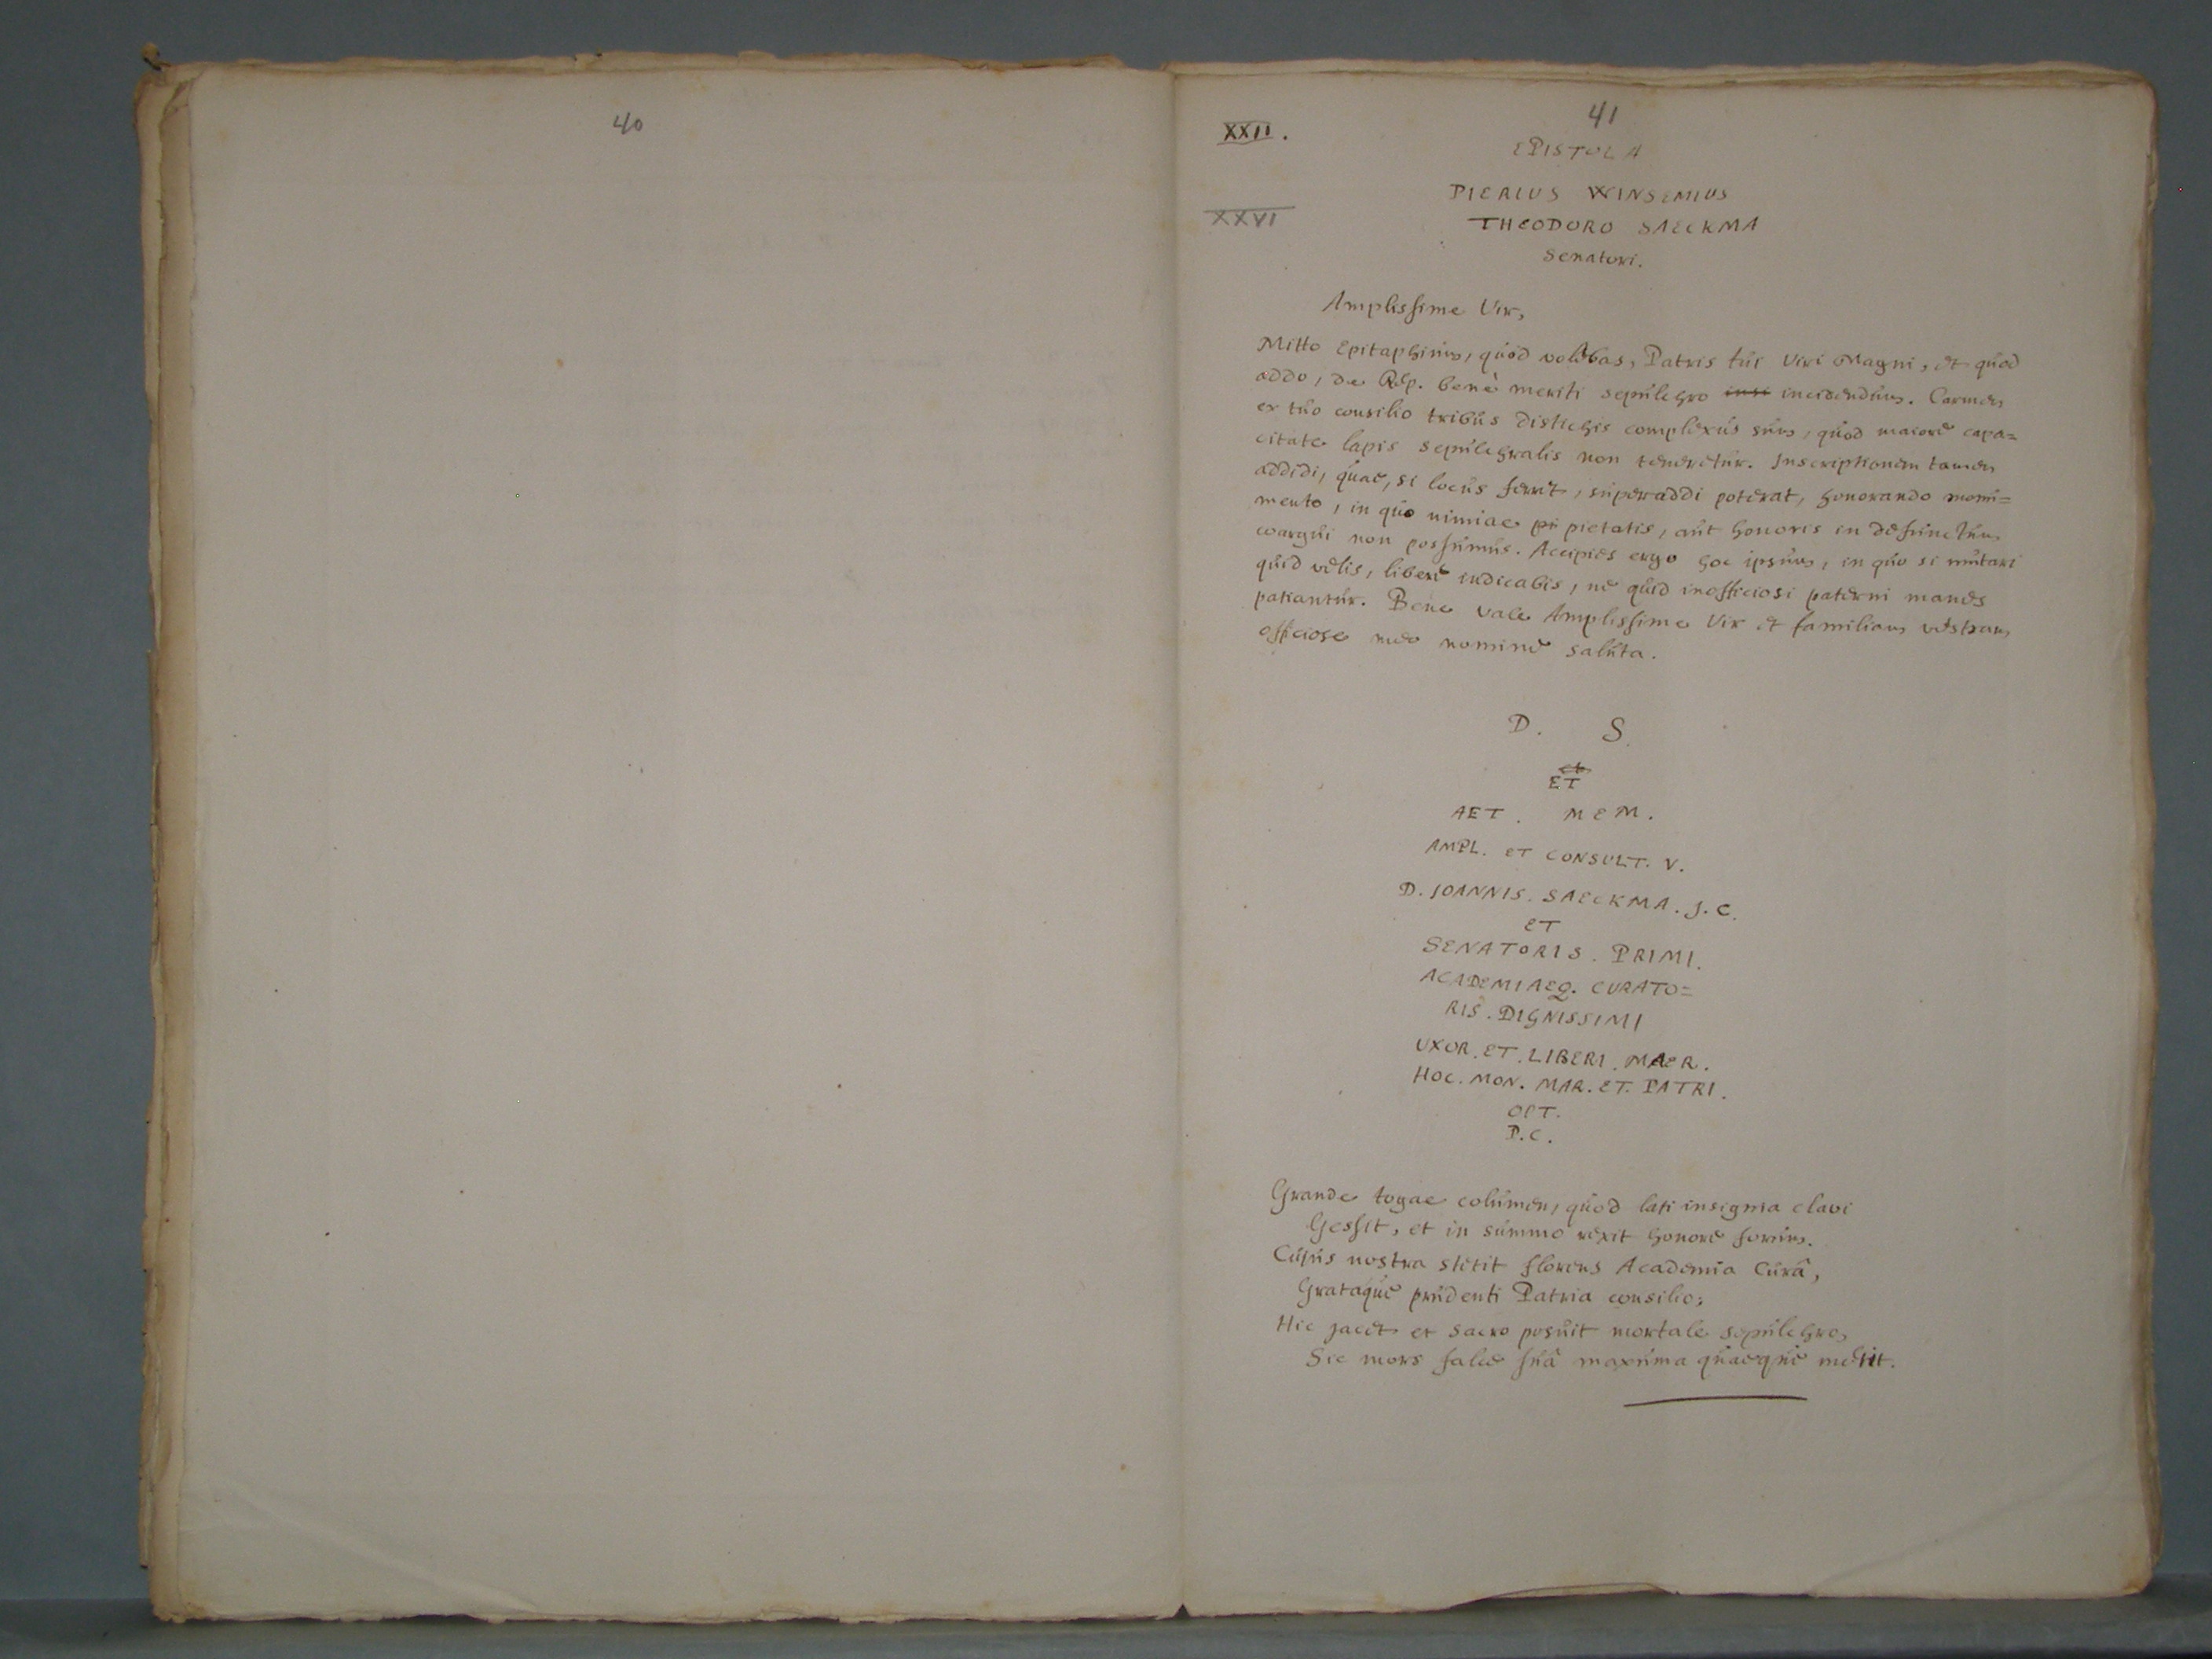 40
41
XXII.
EPISTOLA
PIERIUS WINSEMIUS
XXVI
THEODORO SAECKMA
Senatori.
Amplissime Vir,
Mitto Epitaphium, quod volebas, Patris tui Viri Magni, et quod
addo, de Rep. bene meriti sepulchro insi incidendum. Carmen
ex tuo consilio tribus distichis complexus sum, quod maiore capa=
citate lapis sepulchralis non teneretur. Inscriptionem tamen
addidi, quae, si locus ferret, superaddi poterat, honorando monu=
mento, in quo nimiae pi pietatis, aut honoris in defunctum
coargui non possumus. Accipies ergo hoc ipsum, in quo si mutari
quid velis, liberè indicabis, ne quid inofficiosi paterni manes
patiantur. Bene vale Amplissime Vir et familiam vestram
officiose meo nomine saluta.
D. S.
et
ET
AET. MEM.
AMPL. ET CONSULT. V.
D. JOANNIS. SAECKMA. J.C.
ET
SENATORIS. PRIMI.
ACADEMIAEQ. CURATO=
RIS. DIGNISSIMI
UXOR. ET. LIBERI. MAER.
HOC. MON. MAR. ET. PATRI.
OPT.
P.C.
Grande togae columen, quod lati insignia clavi
Gessit, et in summo rexit honore forum.
Cujus nostra stetit florens Academia curâ,
Grataque prudenti Patria consilio;
Hic jacet et sacro posuit mortale sepulchro,
Sic mors falce suâ maxuma quaeque metit.